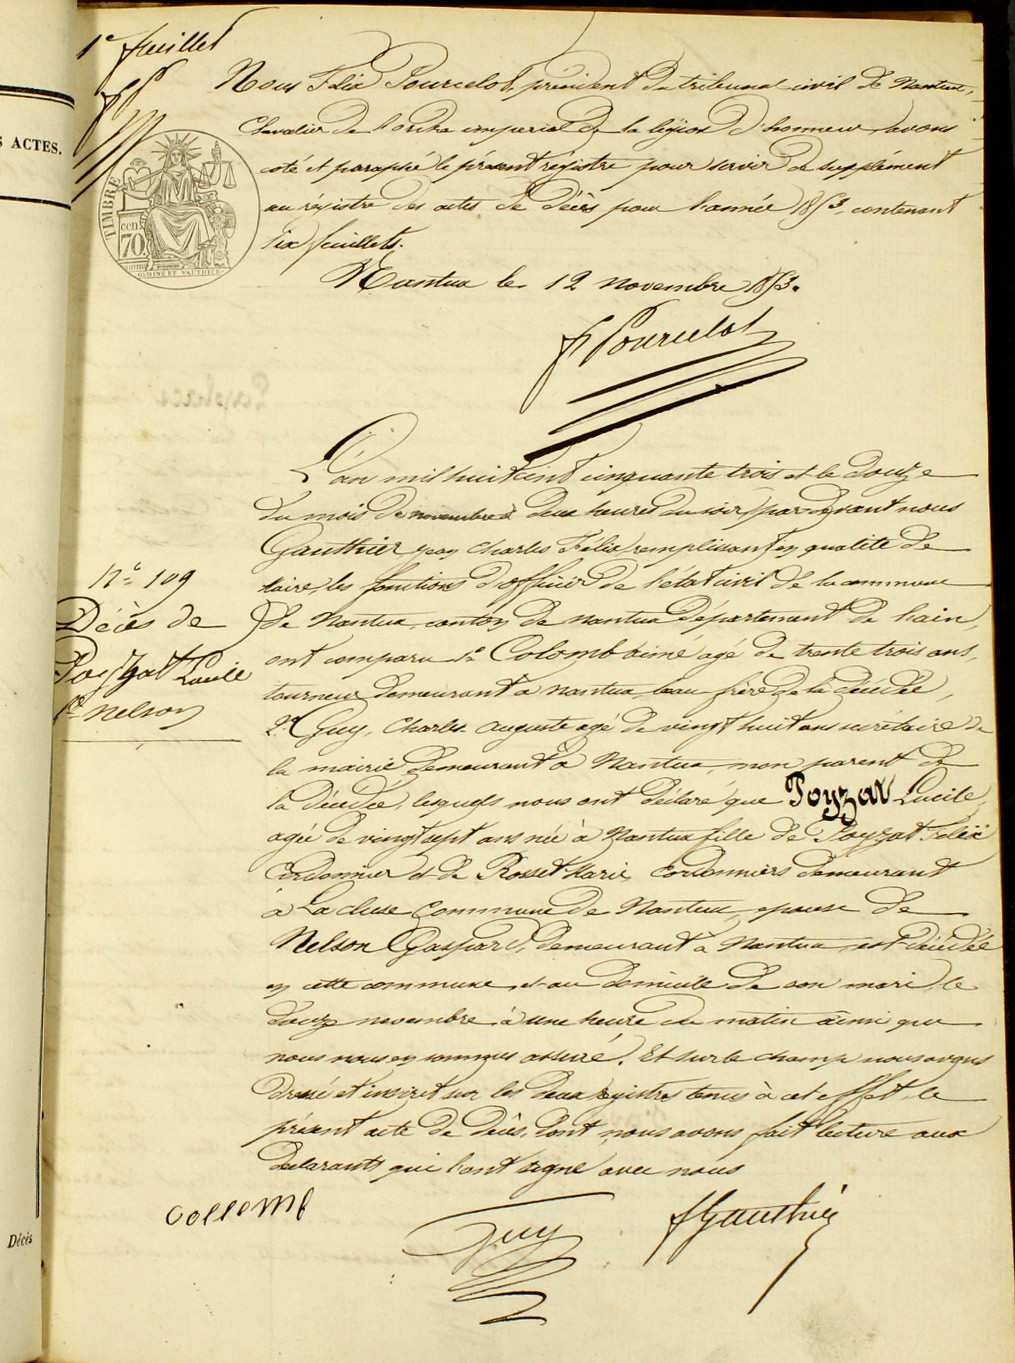 S ACTES.
1e feuillet
Nous Félix Pourcelot, président du tribunal civil de Nantua,
Chevalier de l'ordre imperial de la légion d'honneur, avons
coté et paraphé le présent régistre pour servir de supplément
au régistre des actes de décès pour l'année 1853, contenant
six feuillets.
Nantua le 12 novembre 1853.
TIMBRE
cent
70
F Pourcelot
L'an mil huit cent cinquante trois et le douze
du mois de novembre à deux heures du soir, par-devant nous
Gauthier Charles Félix remplissant en qualité de
Maire, les fonctions d'officier de l'état civil de la commune
de Nantua, canton de nantua département de l'ain,
ont comparu 1e Colomb aimé agé de trente trois ans,
tourneur demeurant à nantua beau frère de la décédée,
2e Guy, Charles auguste agé de vingt huit ans secrétaire de
la mairie demeurant à Nantua, non parent de
la décédée, lesquels nous ont déclaré que Poyzat Lucile,
agée de vingt sept ans née à Nantua fille de Poyzat Félix
Cordonnier et de Rosset Marie, cordonniers demeurant
à La cluse Commune de Nantua, epouse de
Nelson Gaspard, demeurant à Nantua, est décédée
en cette commune et au domicile de son mari, le
douze novembre à une heure du matin ainsi que
nous nous en sommes assuré. Et sur le champ nous avons
dressé et inscrit sur les deux régistres tenus à cet effet, le
présent acte de décès, dont nous avons fait lecture aux
declarants qui l'ont signé avec nous
N° 109
Décès de
Poyzat Lucile
fe Nelson
collomb
Guy
f Gauthier
Décès